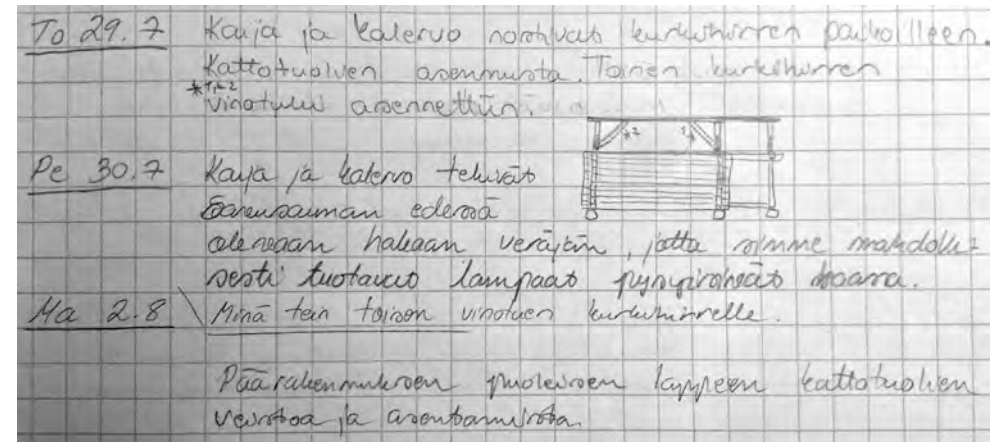 To 29.7 Kaija ja Kalervo nostivat kurkihirren paikoilleen.
Kattotuolien asennusta. Toinen kurkihirren
*1,*2
vinotuki asennettiin.
*2 1*
Pe 30.7 Kaija ja Kalervo tekivät
edessä
olevaan hakaan veräjän, jotta voimme mahdolli-
sesti tuotavat lampaat pysyisivät haassa.
Ma 2.8 Minä tein toisen vinotuen kurkihirrelle.
Päärakennuksen puoleisen lappeen kattotuolien
veistoa ja asentamista.